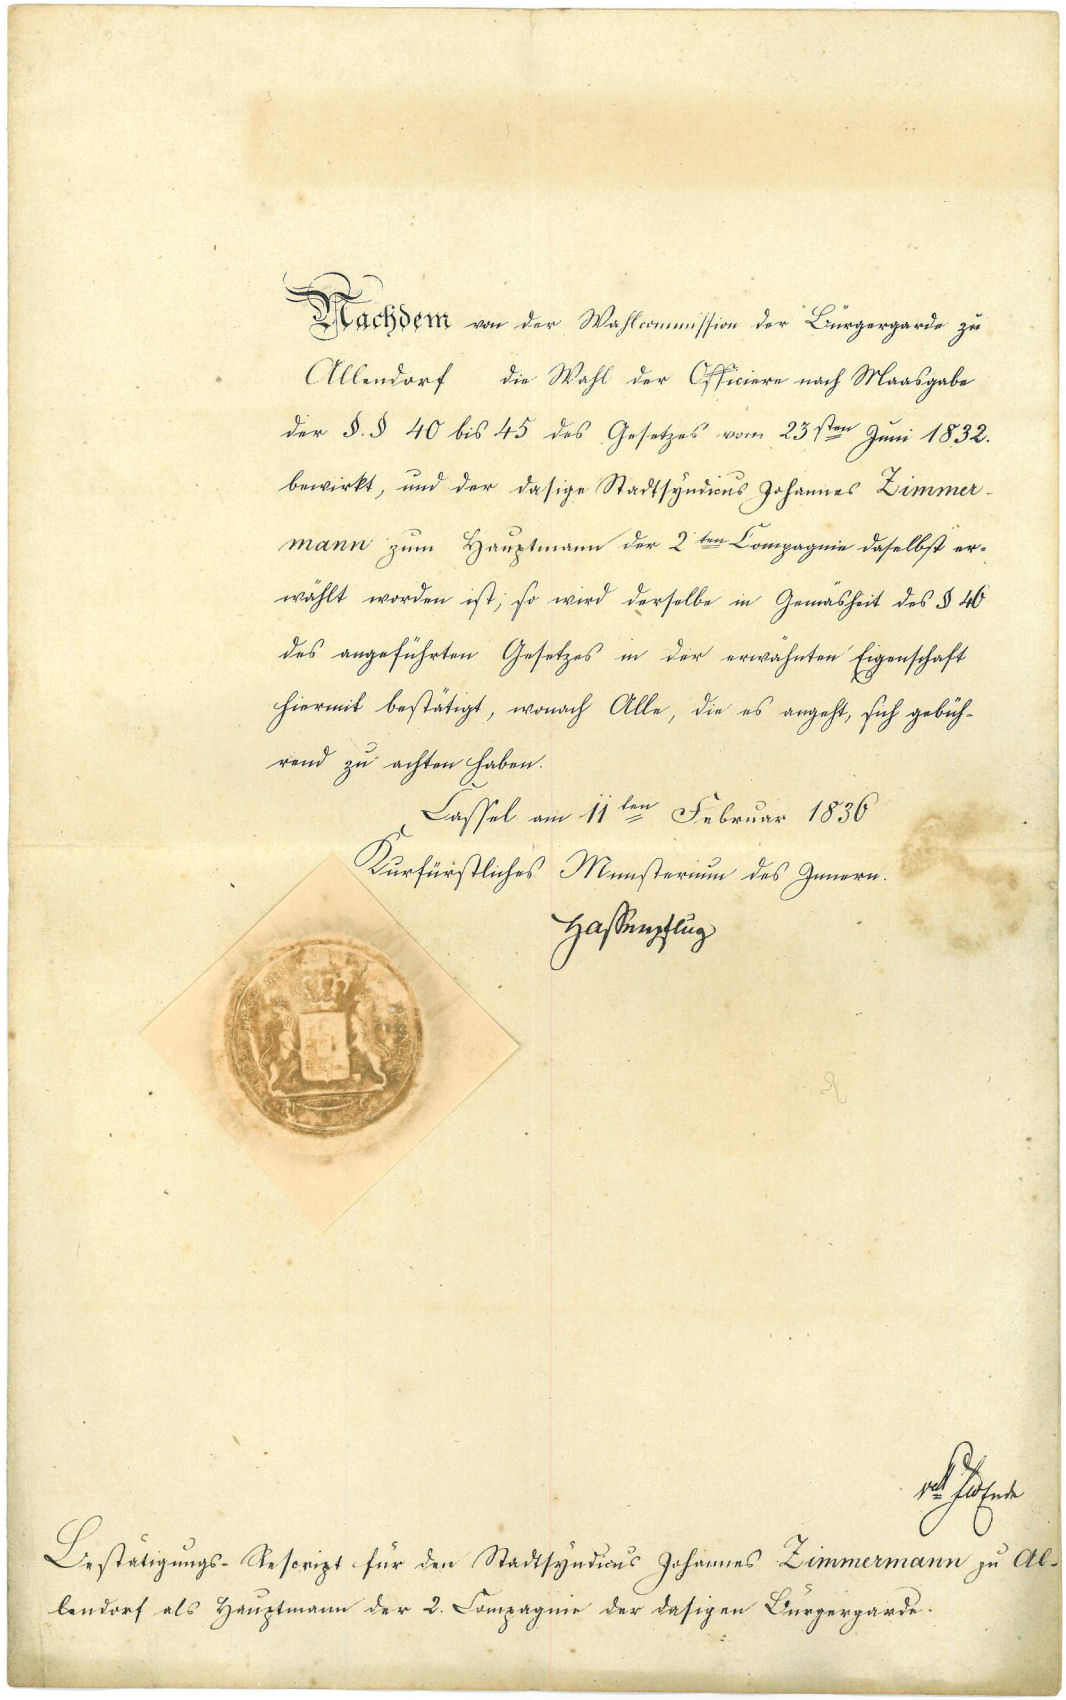 Nachdem von der Wahlcommission der Bürgergarde zu
Allendorf die Wahl der Officiere nach Maasgabe
der §.§ 40 bis 45 des Gesetzes vom 23sten Juni 1832.
bewirkt, und der dasige Stadtsyndicus Johannes Zimmer-
mann zum Hauptmann der 2ten Compagnie daselbst er-
wählt worden ist, so wird derselbe in Gemäsheit des § 46
des angeführten Gesetzes in der erwähnten Eigenschaft
hiermit bestätigt, wonach Alle, die es angeht, sich gebüh-
rend zu achten haben.
Cassel am 11ten Februar 1836
Kurfürstliches Ministerium des Innern.
Hassenpflug
Bestätigungs-Rescript für den Stadtsyndicus Johannes Zimmermann zu Al-
lendorf als Hauptmann der 2. Compagnie der dasigen Bürgergarde.